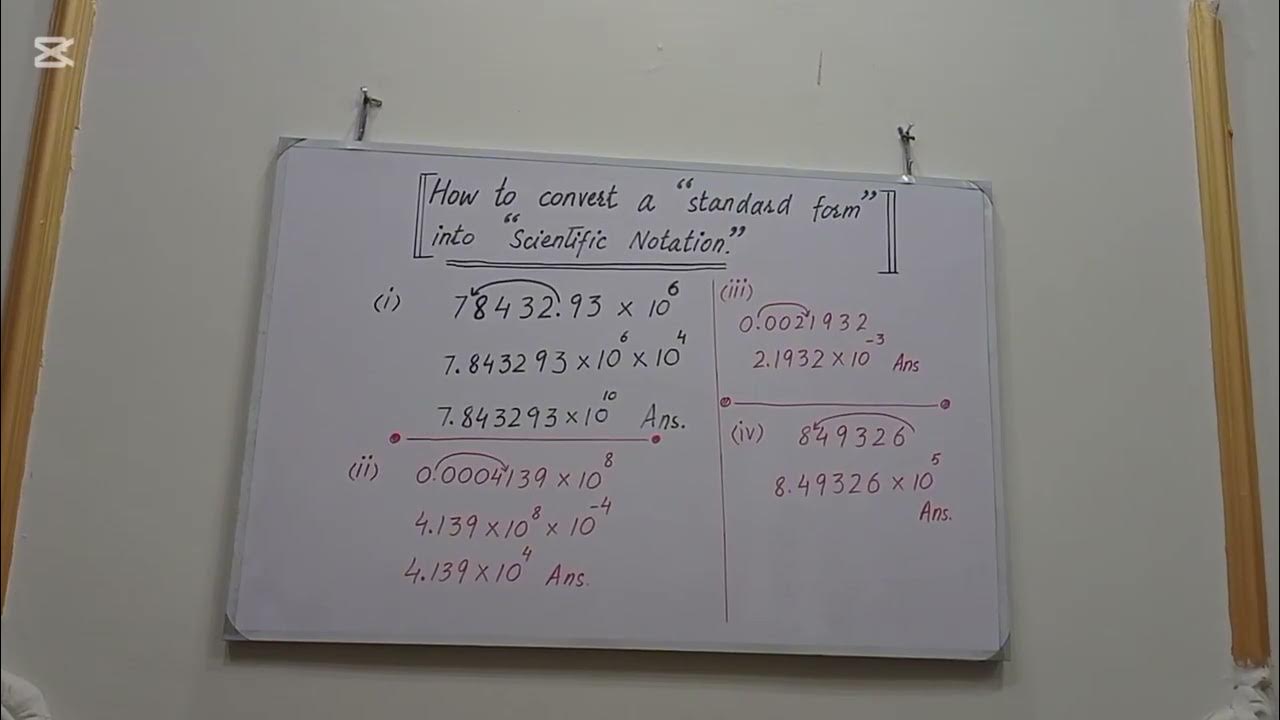 How to convert a “standard form”
into “Scientific Notation.”
(i) 78432.93 × 10⁶
7.843293 × 10⁶ × 10⁴
7.843293 × 10¹⁰ Ans.
(ii) 0.0004139 × 10⁸
4.139 × 10⁸ × 10⁻⁴
4.139 × 10⁴ Ans.
(iii)
0.0021932
2.1932 × 10⁻³ Ans
(iv) 849326
8.49326 × 10⁵
Ans.